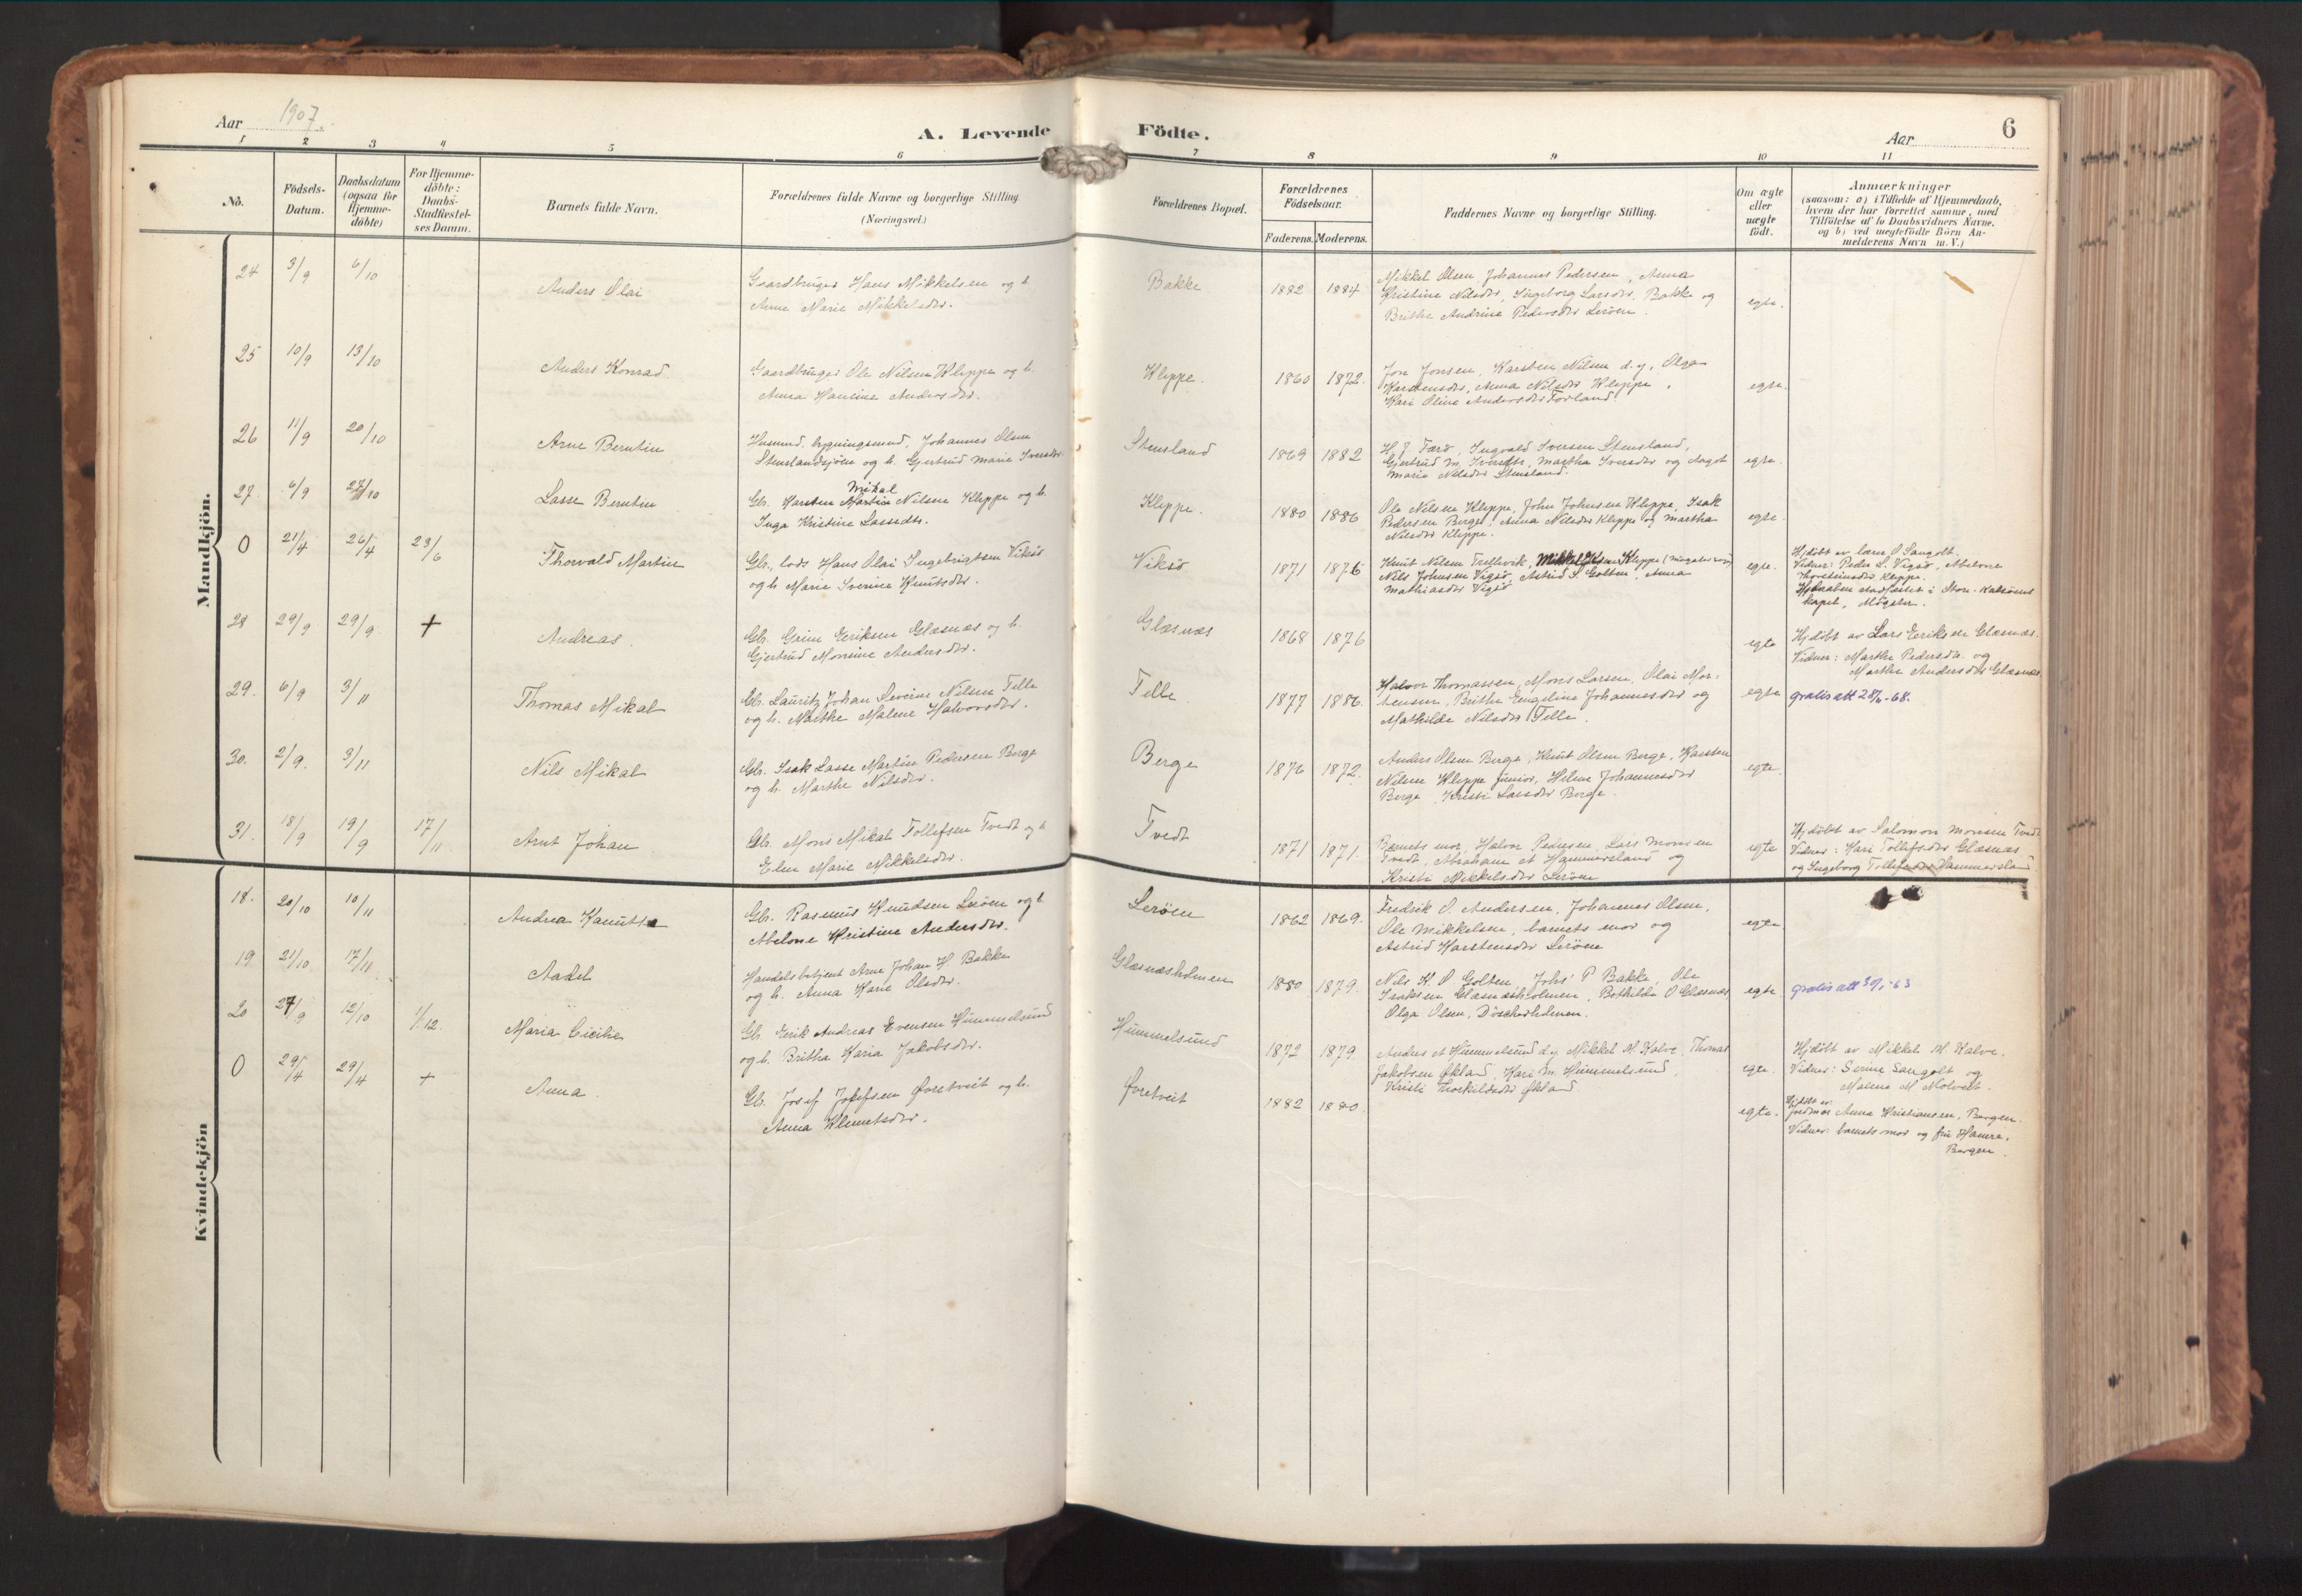 Aar 1907.
A. Levende Födte.
Aar
6
1 2 3 4 5 6 7 8 9 10 11
No.
Födsels-
Datum.
Daabsdatum
(ogsaa for
Hjemme-
döbte)
For Hjemme-
döbte:
Daabs-
Stadfæstel-
ses Datum.
Barnets fulde Navn.
Forældrenes fulde Navne og borgerlige Stilling
(Næringsvei.)
Forældrenes Bopæl.
Forældrenes
Födselsaar.
Faderens. Moderens.
Faddernes Navne og borgerlige Stilling.
Om ægte
eller
uægte
födt.
Anmærkninger
(saasom: a) i Tilfælde af Hjemmedaab,
hvem der har forrettet samme, med
Tilföielse af to Daabsvidners Navne,
og b) ved uegtefödte Börn An-
melderens Navn m. V.)
Mandkjön.
24 3/9 6/10
Anders Olai
Gaardbruger Hans Mikkelsen og h.
Anne Marie Mikkelsdtr.
Bakke
1882 1884
Mikkel Olsen, Johannes Pedersen, Anna
Kristine Nilsdtr, Ingeborg Larsdtr, Bakke og
Brithe Andrine Pedersdtr Lerøen.
egte.
25 10/9 13/10
Anders Konrad
Gaardbruger Ole Nilsen Kleppe og h.
Anna Hansine Andersdtr.
Kleppe.
1860 1872.
Jon Jonsen, Karsten Nilsen d.y., Olga
Karstensdtr, Anna Nilsdtr Kleppe,
Kari Oline Andersdtr Forland.
egte.
26 11/9 20/10
Arne Berntin
Husmd. bygningsmd. Johannes Olsen
Stenslandsjöen og h. Gjertrud Marie Iversdtr
Stensland
1869 1882
H. J. Færö, Ingvald Iversen Stensland,
Gjertrud M. Iversdtr, Martha Iversdtr og Aagot
Marie Nilsdtr Stensland.
egte.
27. 6/9 27/10
Lasse Berntin
Mikal
Gb. Karsten Martin Nilsen Kleppe og h.
Inga Kristine Lassedtr.
Kleppe.
1880 1886
Ole Nilsen Kleppe, John Johnsen Kleppe, Isak
Pedersen Berge, Anna Nilsdtr Kleppe og Martha
Nilsdtr Kleppe.
egte.
0 21/4 26/4 23/6
Thorvald Martin
Gb., lods Hans Olai Ingebrigtsen Viksö
og h. Marie Iverine Knutsdtr.
Viksö
1871 1875
Knut Nilsen Trellevik, Mikkel Olsen Kleppe
Nils Johnsen Vigsö, Astrid S. Golten, Anna
Mathiasdtr Vigsö
egte.
Hjdöbt av lærer O Sangolt.
Vidner: Peder L. Vigsö, Abelone
Thorsteinsdtr Kleppe.
Hjdaaben stadfæstet i Store-Kalsöens
kapel, Møgster.
28 29/9 29/9 +
Andreas.
Gb. Grim Eriksen Glæsnæs og h.
Gjertrud Monsine Andersdtr.
Glæsnæs
1868 1876
egte
Hjdöbt av Lars Eriksen Glæsnæs.
Vidner: Marthe Pedersdtr og
Marthe Andersdtr Glæsnæs
29. 6/9 3/11
Thomas Mikal
Gb. Lauritz Johan Severin Nilsen Telle
og h. Marthe Malene Halvorsdtr.
Telle
1877 1886.
Halvor Thomassen, Mons Larsen, Olai Mor-
tensen, Brithe Engeline Johannesdtr og
Mathilde Nilsdtr Telle.
egte
gratis att 28/11-68.
30. 2/9. 3/11
Nils Mikal
Gb. Isak Lasse Martin Pedersen Berge
og h. Marthe Nilsdtr.
Berge
1876 1872.
Anders Olsen Berge, Knut Olsen Berge, Karsten
Nilsen Kleppe junior, Helene Johannesdtr
Berge, Kristi Larsdtr Berge.
egte.
31. 18/9 19/9 17/11
Arnt Johan
Gb. Mons Mikal Tollefsen Tvedt og h
Elen Marie Mikkelsdtr.
Tvedt
1871 1871.
Barnets mor, Halvor Pedersen, Lars Monsen
Tvedt, Abraham A Hammersland og
Kristi Mikkelsdtr Lerøen
egte
Hjdöbt av Salomon Monsen Tvedt
Vidner: Kari Tollefsdtr Glæsnæs
og Ingeborg Tollefsdtr Hammersland
Kvindekjön
18. 20/10 10/11
Andrea Kanutte
Gb. Rasmus Knudsen Lerøen og h
Abelone Kristine Andersdtr.
Lerøen
1862 1869.
Fredrik O. Andersen, Johannes Olsen,
Ole Mikkelsen, barnets mor og
Astrid Karstensdtr Lerøen
egte
19 21/10 17/11
Aadel
Handelsbetjent Arne Johan H. Bakke
og h. Anna Karie Olsdtr.
Glæsnæsholmen
1880 1879.
Nils K. O. Golten, Johs P Bakke, Ole
Isaksen Glæsnæsholmen, Bothilda O Glæsnæs
Olga Olsen, Döscherholmen.
egte
gratis att 30/1-63
20 27/9 12/10 1/12.
Maria Cicilie
Gb. Erik Andreas Evensen Hummelsund
og h. Britha Karia Jakobsdtr.
Hummelsund
1872 1879.
Anders A Hummelsund d.y. Mikkel M. Kalve, Thomas
Jakobsen Økland, Kari M. Hummelsund,
Kristi Thorkildsdtr Økland
egte.
Hjdöbt av Mikkel M. Kalve.
Vidner: Serine Sangolt og
Malene M Molveit.
0 29/4 29/4 +
Anna.
Gb. Josef Josefsen Øvretveit og h.
Anna Klemetsdtr.
Øvretveit
1882 1880.
egte.
Hjdöbt av
jordmor Anna Kristiansen, Bergen.
Vidner: barnets mor og fru Hamre,
Bergen.